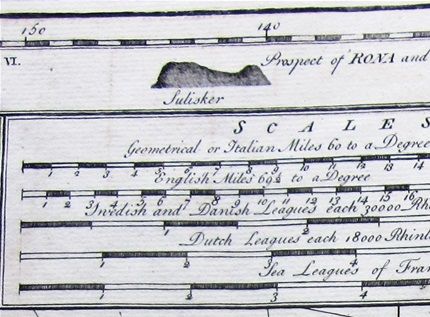 150 140
VI. Prospect of RONA and
Sulisker
SCALES
Geometrical or Italian Miles 60 to a Degree
1 2 3 4 5 6 7 8 9 10 11 12 13 14
English Miles 69½ to a Degree
1 2 3 4 5 6 7 8 9 10 11 12 13 14 15 16
Swedish and Danish Leagues each 30000 Rhi
1 2
Dutch Leagues each 18000 Rhinl
1 2 3 4
Sea Leagues of Fran
1 2 3 4